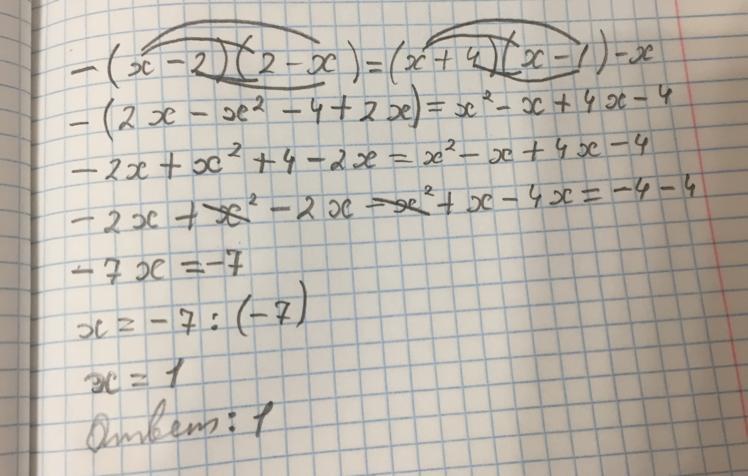 -(x-2)(2-x)=(x+4)(x-1)-x
-(2x-x²-4+2x)=x²-x+4x-4
-2x+x²+4-2x=x²-x+4x-4
-2x+x²-2x-x²+x-4x=-4-4
-7x=-7
x=-7:(-7)
x=1
Ответ: 1